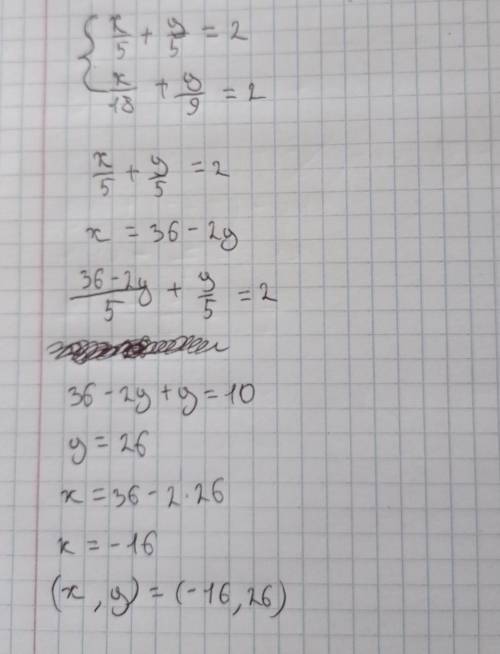 x/5 + y/5 = 2
x/18 + y/9 = 2
x/5 + y/5 = 2
x = 36 - 2y
(36 - 2y)/5 + y/5 = 2
36 - 2y + y = 10
y = 26
x = 36 - 2 · 26
x = -16
(x, y) = (-16, 26)